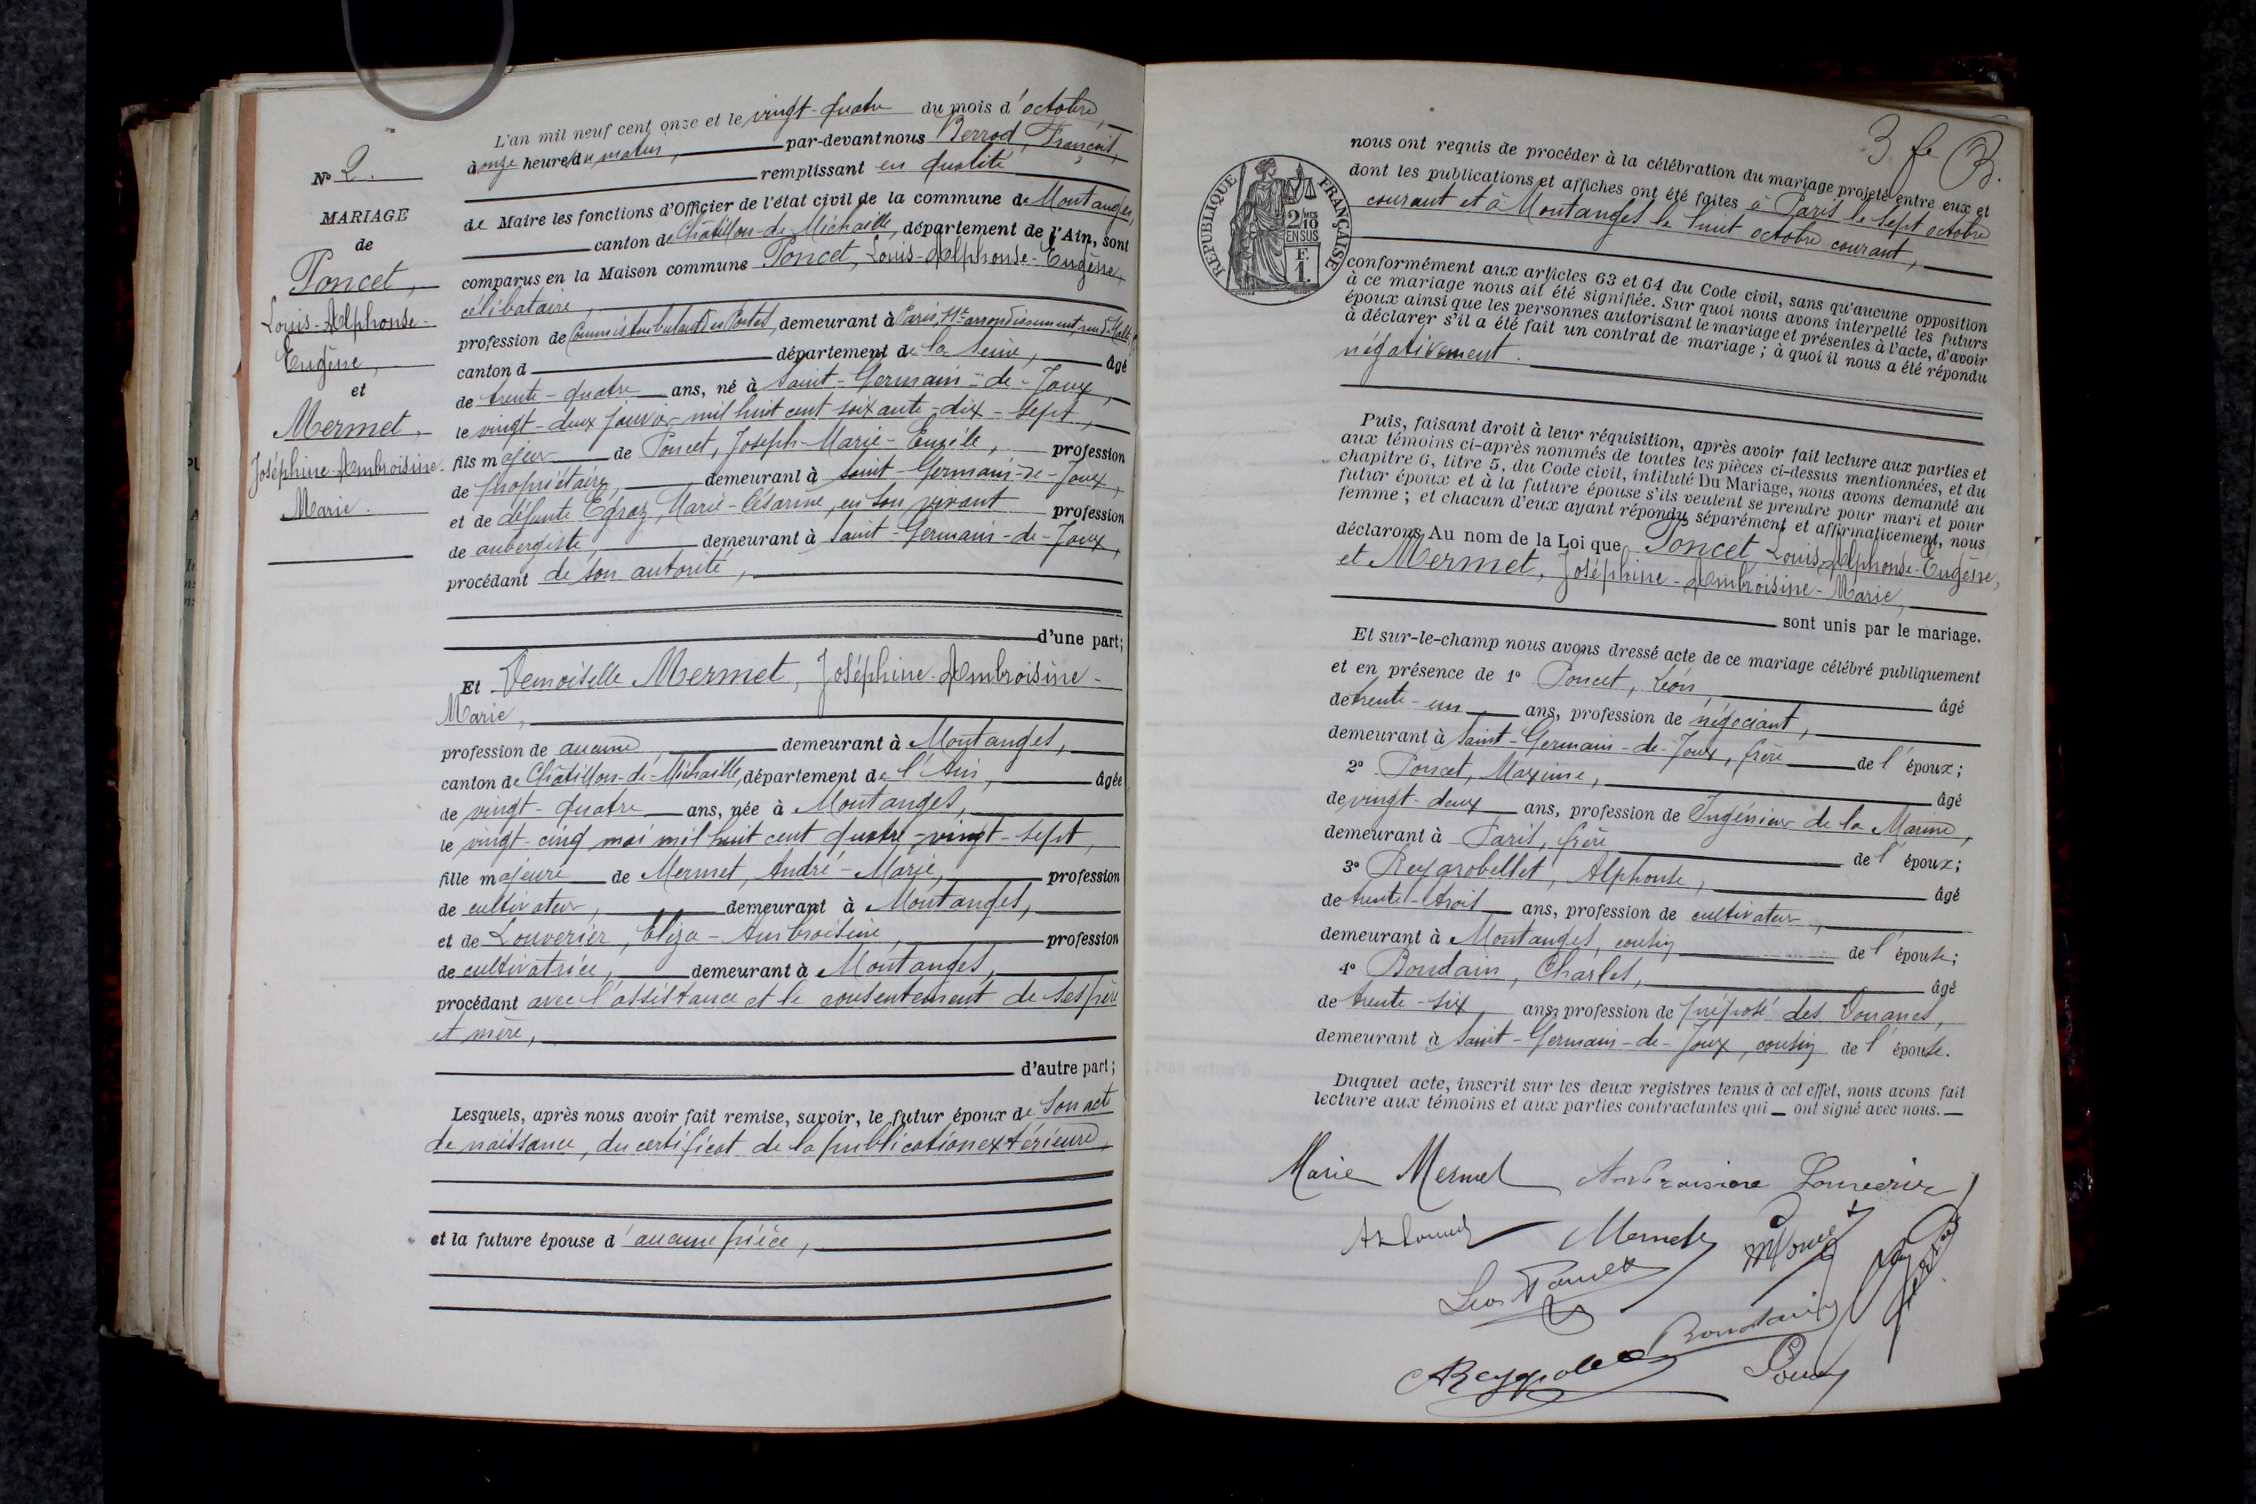 N° 2.
MARIAGE
de
Poncet,
Louis-Alphonse-
Eugène,
et
Mermet,
Joséphine-Ambroisine-
Marie.
L'an mil neuf cent onze et le vingt-quatre du mois d'octobre,
à onze heures du matin, par-devant nous Berrod, François,
remplissant en qualité
de Maire les fonctions d'Officier de l'état civil de la commune de Montanges,
canton de Châtillon-de-Michaille, département de l'Ain, sont
comparus en la Maison commune Poncet, Louis-Alphonse-Eugène,
célibataire
profession de Commis ambulant des Postes, demeurant à Paris, 11e arrondissement, rue
canton d département de la Seine, âgé
de trente-quatre ans, né à Saint-Germain-de-Joux,
le vingt-deux janvier mil huit cent soixante-dix-sept,
fils majeur de Poncet, Joseph-Marie-Eugène, profession
de propriétaire, demeurant à Saint-Germain-de-Joux,
et de défunte Egraz, Marie-Césarine, en son vivant profession
de aubergiste, demeurant à Saint-Germain-de-Joux,
procédant de son autorité,
d'une part;
Et Demoiselle Mermet, Joséphine-Ambroisine-
Marie,
profession de aucune, demeurant à Montanges,
canton de Châtillon-de-Michaille, département de l'Ain, âgée
de vingt-quatre ans, née à Montanges,
le vingt-cinq mai mil huit cent quatre-vingt-sept,
fille majeure de Mermet, André-Marie, profession
de cultivateur, demeurant à Montanges,
et de Louverier, Eliza-Ambroisine, profession
de cultivatrice, demeurant à Montanges,
procédant avec l'assistance et le consentement de ses père
et mère,
d'autre part;
Lesquels, après nous avoir fait remise, savoir, le futur époux de son acte
de naissance, du certificat de la publication extérieure,
et la future épouse d'aucune pièce,
3 fe B.
RÉPUBLIQUE FRANÇAISE
2/10 MES
EN SUS
F. 1
nous ont requis de procéder à la célébration du mariage projeté entre eux et
dont les publications et affiches ont été faites à Paris le sept octobre
courant et à Montanges le huit octobre courant,
conformément aux articles 63 et 64 du Code civil, sans qu'aucune opposition
à ce mariage nous ait été signifiée. Sur quoi nous avons interpellé les futurs
époux ainsi que les personnes autorisant le mariage et présentes à l'acte, d'avoir
à déclarer s'il a été fait un contrat de mariage ; à quoi il nous a été répondu
négativement.
Puis, faisant droit à leur réquisition, après avoir fait lecture aux parties et
aux témoins ci-après nommés de toutes les pièces ci-dessus mentionnées, et du
chapitre 6, titre 5, du Code civil, intitulé Du Mariage, nous avons demandé au
futur époux et à la future épouse s'ils veulent se prendre pour mari et pour
femme ; et chacun d'eux ayant répondu séparément et affirmativement, nous
déclarons Au nom de la Loi que Poncet Louis-Alphonse-Eugène,
et Mermet, Joséphine-Ambroisine-Marie,
sont unis par le mariage.
Et sur-le-champ nous avons dressé acte de ce mariage célébré publiquement
et en présence de 1° Poncet, Léon, âgé
de trente-un ans, profession de négociant,
demeurant à Saint-Germain-de-Joux, frère de l'époux;
2° Poncet, Maxime, âgé
de vingt-deux ans, profession de Ingénieur de la Marine,
demeurant à Paris, frère de l'époux;
3° Reygrobellet, Alphonse, âgé
de trente-trois ans, profession de cultivateur,
demeurant à Montanges, cousin de l'épouse;
4° Boudain, Charles, âgé
de trente-six ans, profession de préposé des Douanes,
demeurant à Saint-Germain-de-Joux, cousin de l'épouse.
Duquel acte, inscrit sur les deux registres tenus à cet effet, nous avons fait
lecture aux témoins et aux parties contractantes qui ont signé avec nous.
Marie Mermet Ambroisine Louverier
Mermet
Léon Poncet
Boudain